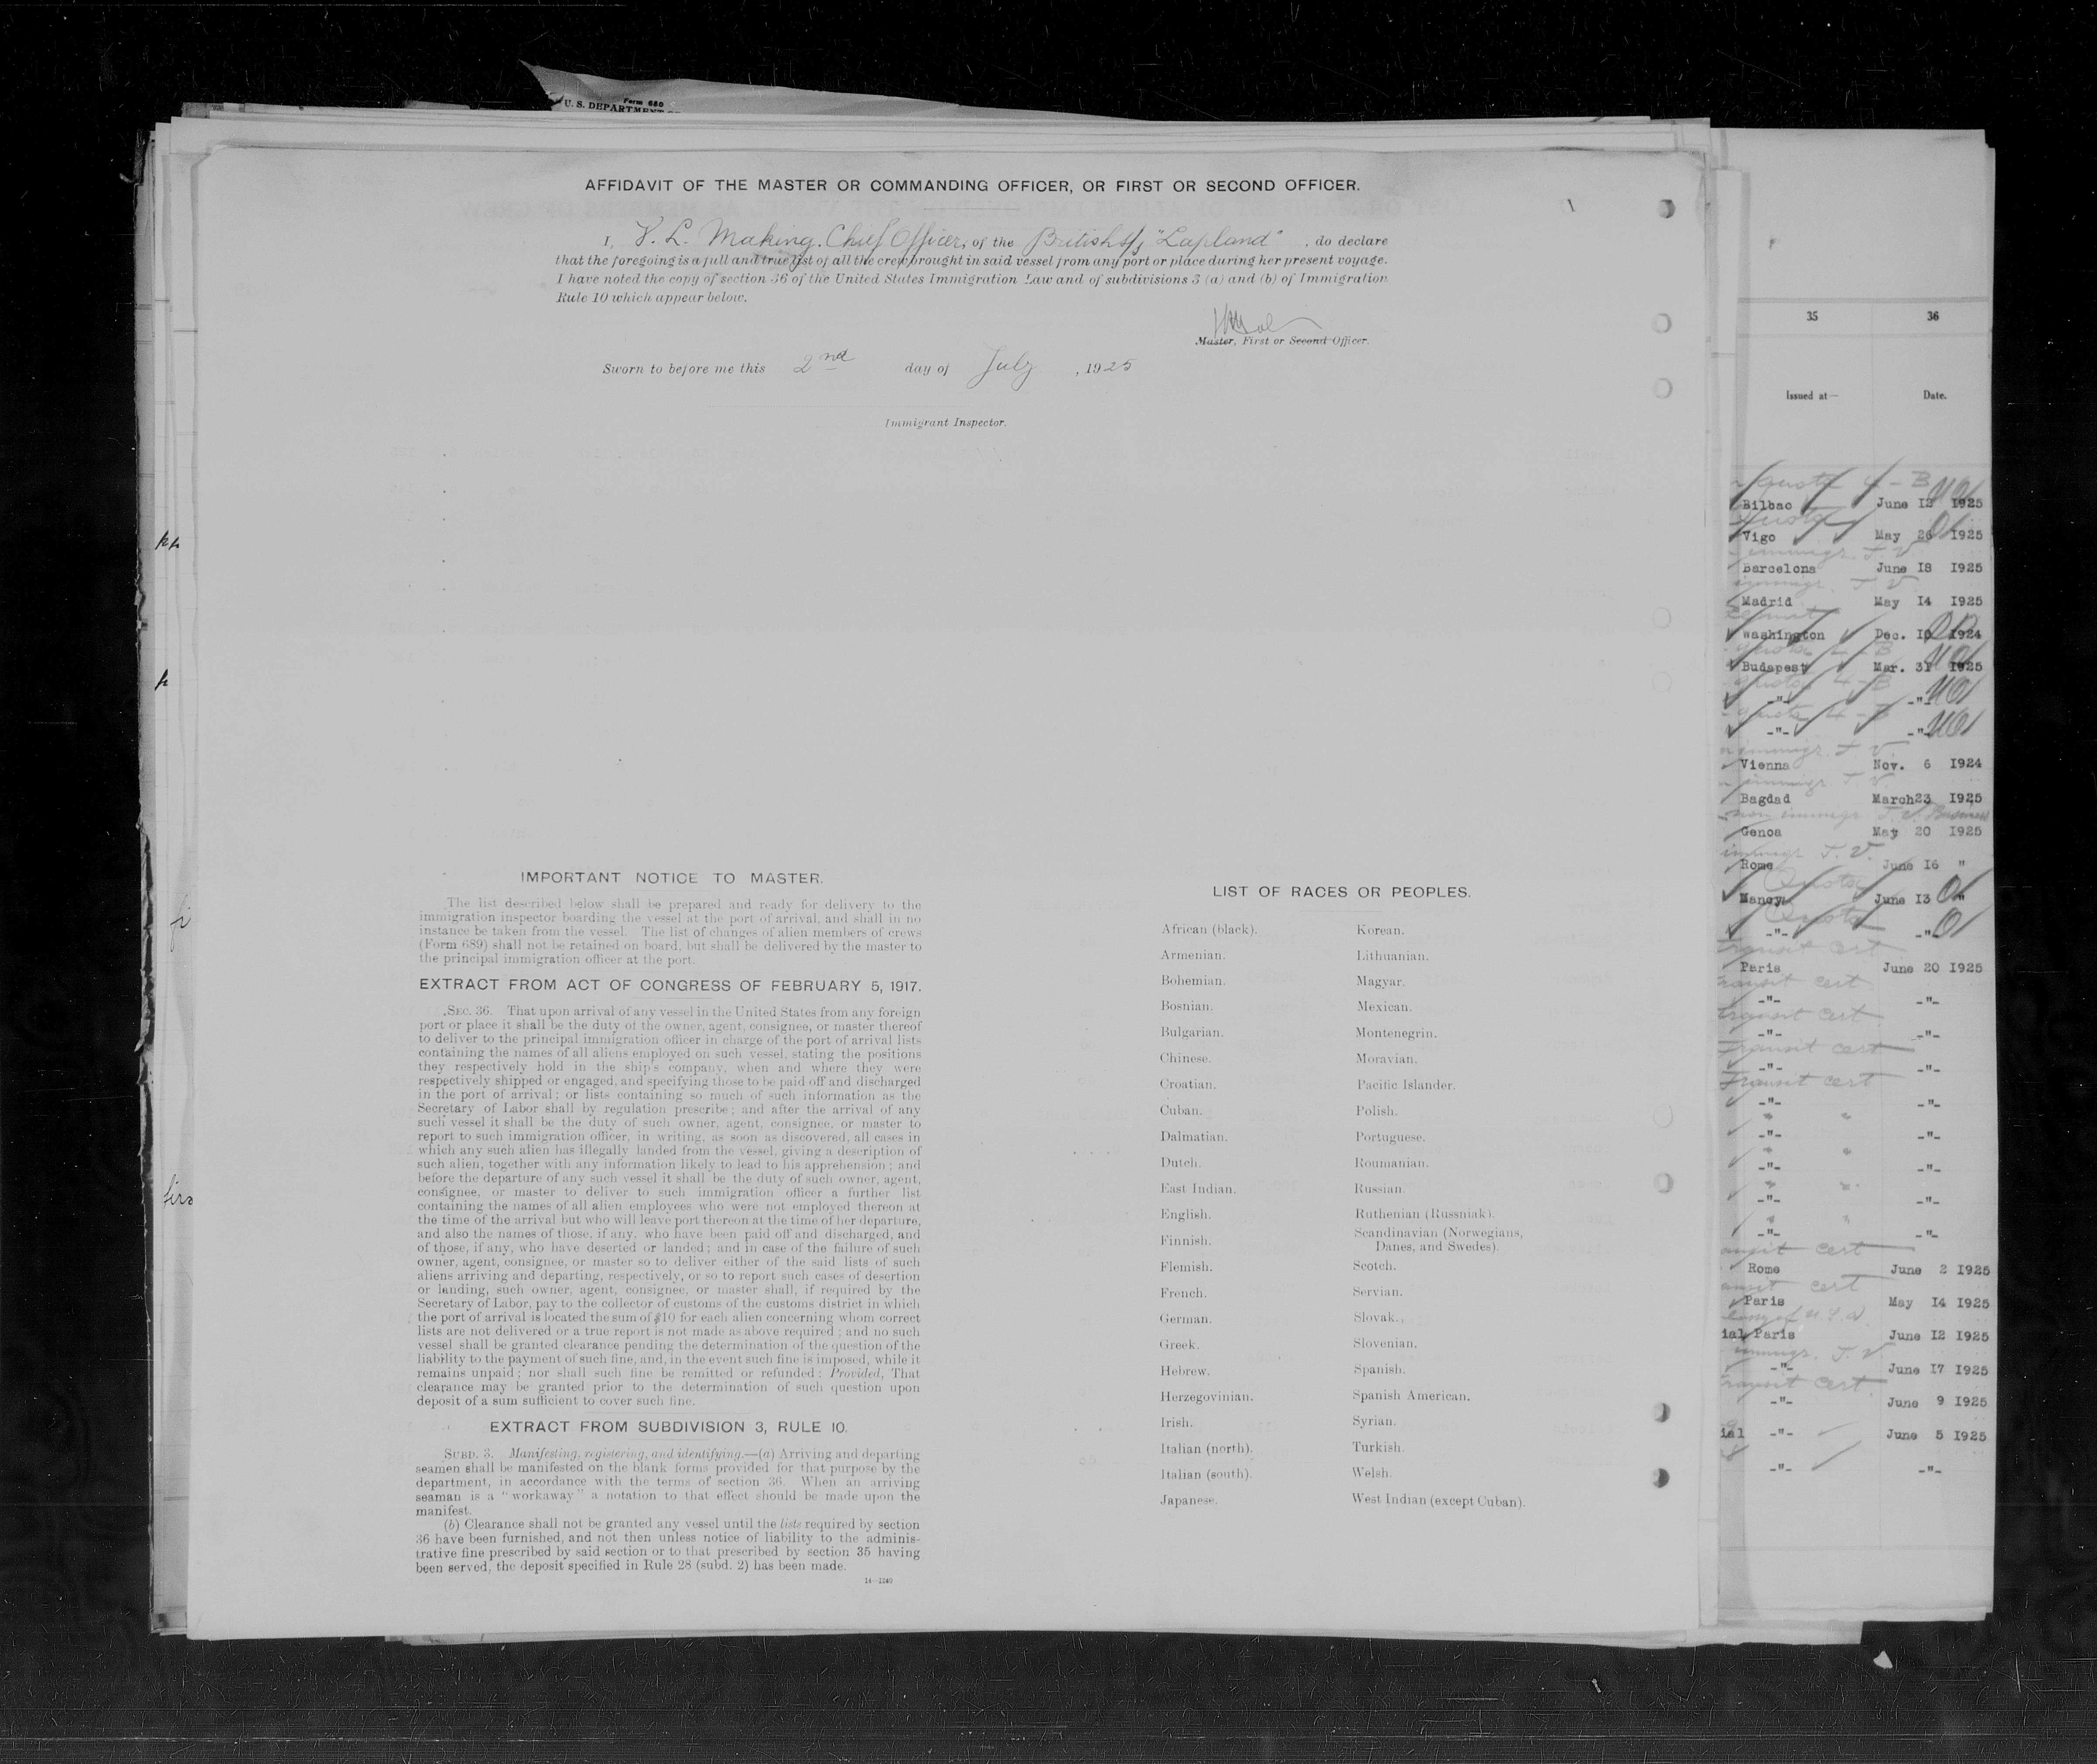 Form 680
U. S. DEPARTMENT
AFFIDAVIT OF THE MASTER OR COMMANDING OFFICER, OR FIRST OR SECOND OFFICER.
I, V. L. Making. Chief Officer, of the British s/s "Lapland", do declare
that the foregoing is a full and true list of all the crew brought in said vessel from any port or place during her present voyage.
I have noted the copy of section 36 of the United States Immigration Law and of subdivisions 3 (a) and (b) of Immigration
Rule 10 which appear below.
Master, First or Second Officer.
Sworn to before me this 2nd day of July, 1925
Immigrant Inspector.
IMPORTANT NOTICE TO MASTER.
The list described below shall be prepared and ready for delivery to the
immigration inspector boarding the vessel at the port of arrival, and shall in no
instance be taken from the vessel. The list of changes of alien members of crews
(Form 689) shall not be retained on board, but shall be delivered by the master to
the principal immigration officer at the port.
EXTRACT FROM ACT OF CONGRESS OF FEBRUARY 5, 1917.
SEC. 36. That upon arrival of any vessel in the United States from any foreign
port or place it shall be the duty of the owner, agent, consignee, or master thereof
to deliver to the principal immigration officer in charge of the port of arrival lists
containing the names of all aliens employed on such vessel, stating the positions
they respectively hold in the ship's company, when and where they were
respectively shipped or engaged, and specifying those to be paid off and discharged
in the port of arrival; or lists containing so much of such information as the
Secretary of Labor shall by regulation prescribe; and after the arrival of any
such vessel it shall be the duty of such owner, agent, consignee, or master to
report to such immigration officer, in writing, as soon as discovered, all cases in
which any such alien has illegally landed from the vessel, giving a description of
such alien, together with any information likely to lead to his apprehension; and
before the departure of any such vessel it shall be the duty of such owner, agent,
consignee, or master to deliver to such immigration officer a further list
containing the names of all alien employees who were not employed thereon at
the time of the arrival but who will leave port thereon at the time of her departure,
and also the names of those, if any, who have been paid off and discharged, and
of those, if any, who have deserted or landed; and in case of the failure of such
owner, agent, consignee, or master so to deliver either of the said lists of such
aliens arriving and departing, respectively, or so to report such cases of desertion
or landing, such owner, agent, consignee, or master shall, if required by the
Secretary of Labor, pay to the collector of customs of the customs district in which
the port of arrival is located the sum of $10 for each alien concerning whom correct
lists are not delivered or a true report is not made as above required; and no such
vessel shall be granted clearance pending the determination of the question of the
liability to the payment of such fine, and, in the event such fine is imposed, while it
remains unpaid; nor shall such fine be remitted or refunded: Provided, That
clearance may be granted prior to the determination of such question upon
deposit of a sum sufficient to cover such fine.
EXTRACT FROM SUBDIVISION 3, RULE 10.
SUBD. 3. Manifesting, registering, and identifying.—(a) Arriving and departing
seamen shall be manifested on the blank forms provided for that purpose by the
department, in accordance with the terms of section 36. When an arriving
seaman is a "workaway" a notation to that effect should be made upon the
manifest.
(b) Clearance shall not be granted any vessel until the lists required by section
36 have been furnished, and not then unless notice of liability to the adminis-
trative fine prescribed by said section or to that prescribed by section 35 having
been served, the deposit specified in Rule 28 (subd. 2) has been made.
14—1240
LIST OF RACES OR PEOPLES.
African (black).
Armenian.
Bohemian.
Bosnian.
Bulgarian.
Chinese.
Croatian.
Cuban.
Dalmatian.
Dutch.
East Indian.
English.
Finnish.
Flemish.
French.
German.
Greek.
Hebrew.
Herzegovinian.
Irish.
Italian (north).
Italian (south).
Japanese.
Korean.
Lithuanian.
Magyar.
Mexican.
Montenegrin.
Moravian.
Pacific Islander.
Polish.
Portuguese.
Roumanian.
Russian.
Ruthenian (Russniak).
Scandinavian (Norwegians,
Danes, and Swedes).
Scotch.
Servian.
Slovak.
Slovenian.
Spanish.
Spanish American.
Syrian.
Turkish.
Welsh.
West Indian (except Cuban).
35 36
Issued at— Date.
Quota 4-B
Bilbao June 12 1925
Quota
Vigo May 26 1925
immigr. T. V.
Barcelona June 18 1925
immigr. T. V.
Madrid May 14 1925
Washington Dec. 10 1924
Quota 4-B
Budapest Mar. 31 1925
Quota 4-B
-"- -"-
Quota 4-B
-"- -"-
immigr. T. V.
Vienna Nov. 6 1924
immigr. T. V.
Bagdad March23 1925
non immigr T. V. Business
Genoa May 20 1925
immigr T. V.
Rome June 16 "
Quota
Nancy June 13 "
Quota
-"- -"-
Transit cert
Paris June 20 1925
Transit cert
-"- -"-
Transit cert
-"- -"-
Transit cert
-"- -"-
Transit cert
-"- -"-
" "
-"- -"-
" "
-"- -"-
" "
-"- -"-
" "
-"- -"-
ansit cert
Rome June 2 1925
ansit cert
Paris May 14 1925
ial Paris June 12 1925
immigr. T. V.
-"- June 17 1925
ransit cert
-"- June 9 1925
ial -"- June 5 1925
-"- -"-